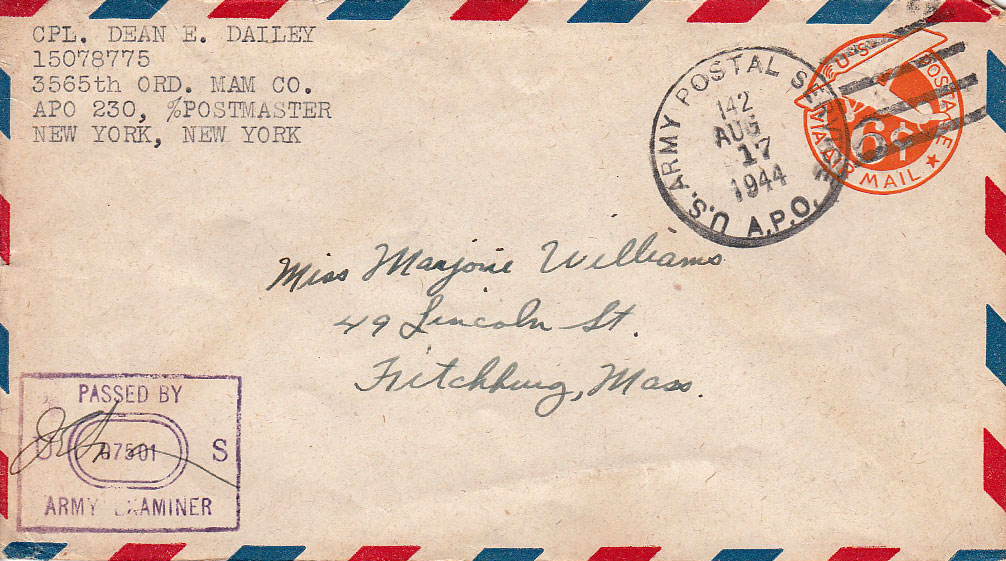 CPL. DEAN E. DAILEY
15078775
3565th ORD. MAM CO.
APO 230, %POSTMASTER
NEW YORK, NEW YORK
U.S. ARMY POSTAL SERVICE
142
AUG
17
1944
A.P.O.
U.S. POSTAGE
6¢
VIA AIR MAIL
Miss Marjorie Williams
49 Lincoln St.
Fitchburg, Mass.
PASSED BY
U 07501 S
ARMY EXAMINER